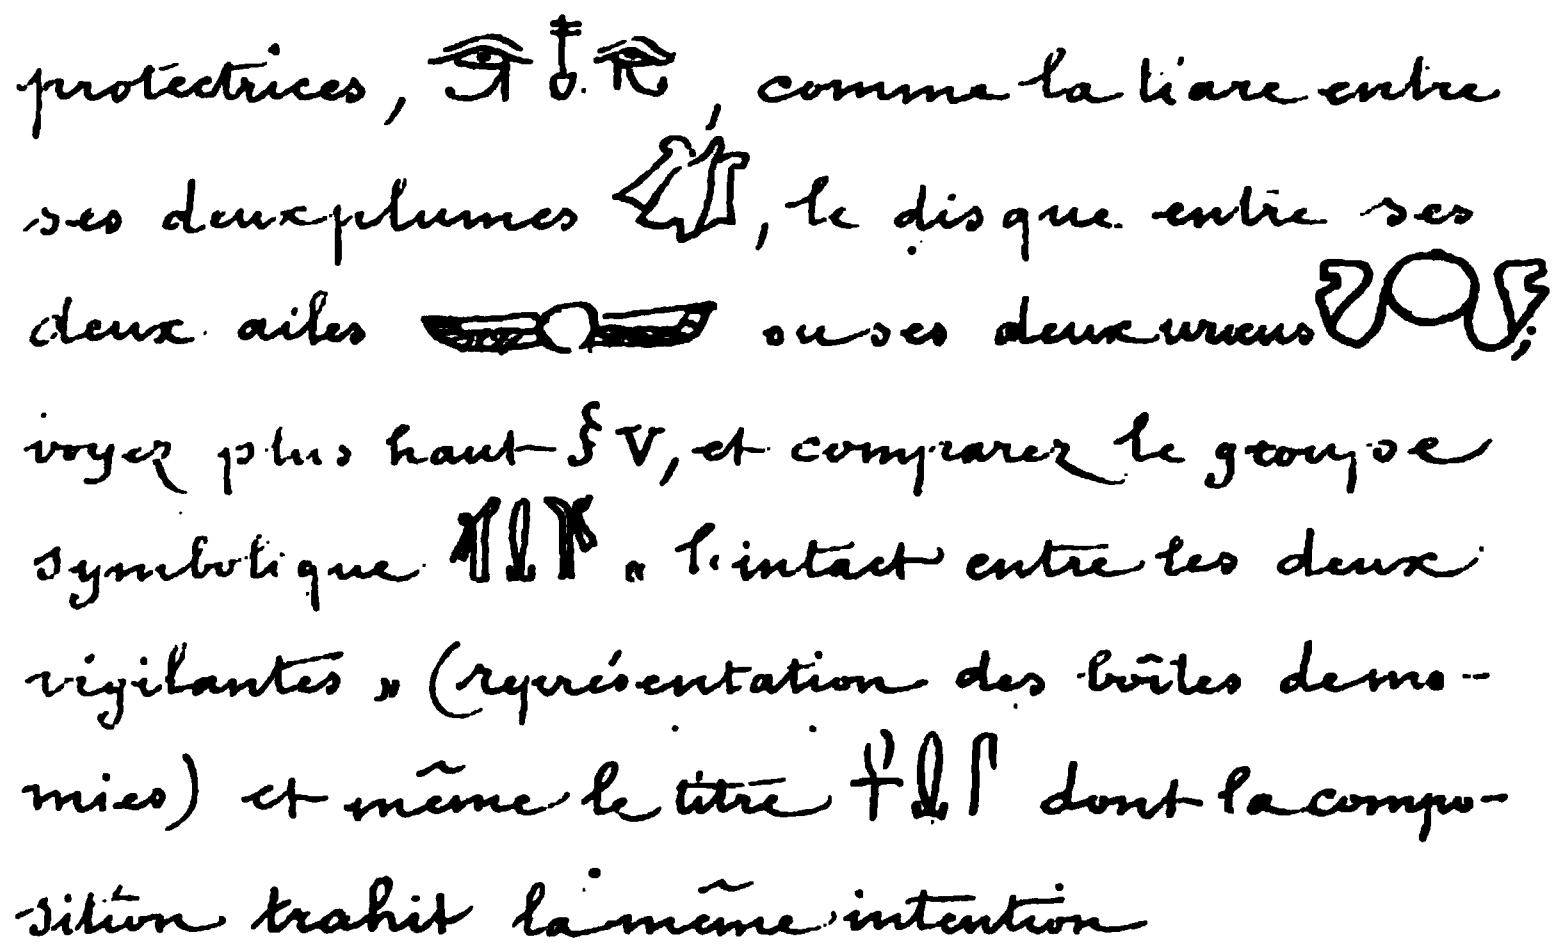 protectrices, 𓂀 𓄤 𓂁, comme la tiare entre
ses deux plumes, le disque entre ses
deux ailes ou ses deux uræus;
voyez plus haut § V, et comparez le groupe
symbolique « l'intact entre les deux
vigilantes » (représentation des boîtes de mo-
mies) et même le titre 𓋹 dont la compo-
sition trahit la même intention